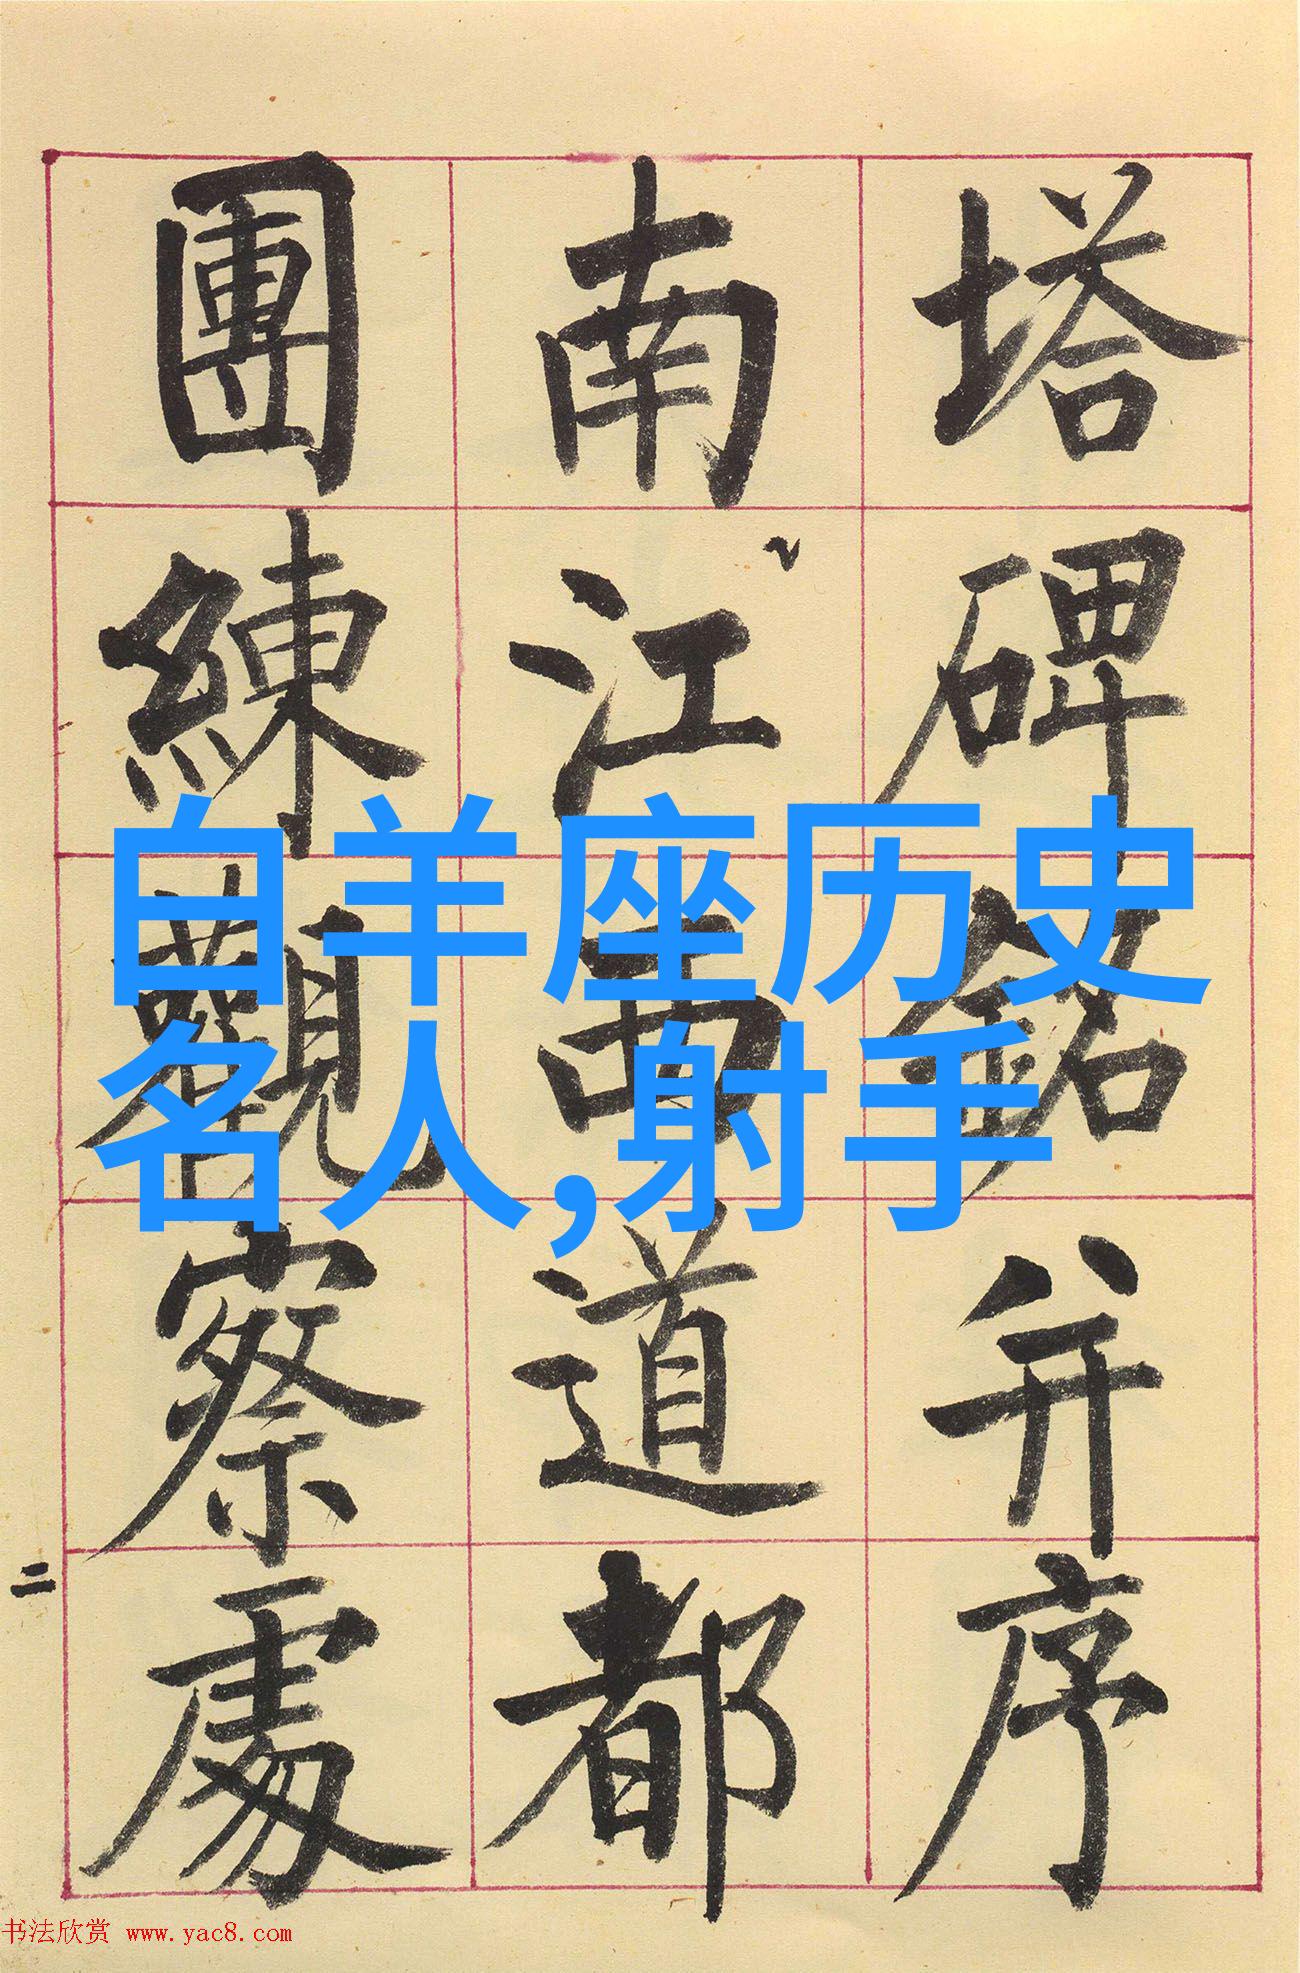 塔碑銘并序
南江西道都
團練觀察處
白羊座历史
名人,射手
二
书法欣赏 www.yac8.com